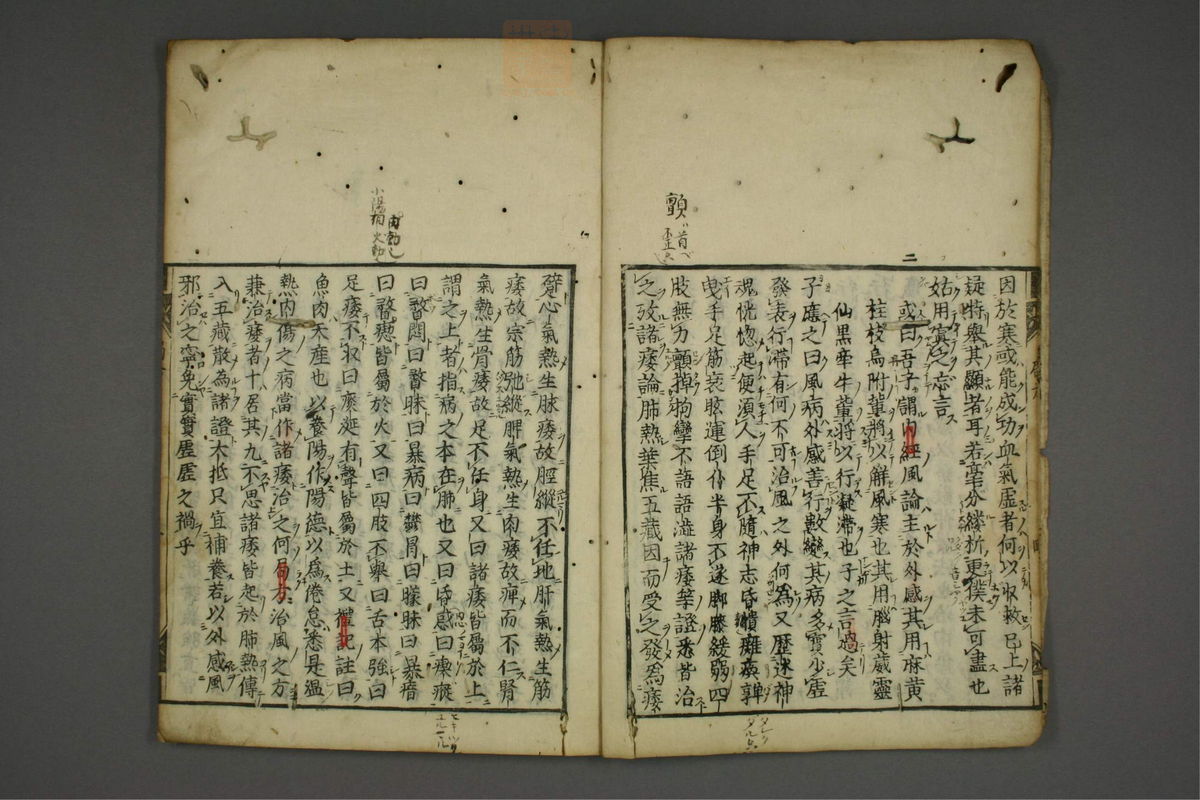 因於寒或能成功血氣虛者何以收救已上諸
疑特舉其顯者耳若毫分縷析更僕未可盡也
姑用寘之忘言
或曰吾子謂內經風論主於外感其用麻黄
桂枝烏附輩將以解風寒也其用腦射威靈
仙黒牽牛輩將以行凝滯也子之言過矣
子應之曰風病外感善行數變其病多實少虛
發表行滯有何不可治風之外何為又歷述神
魂恍惚起便須人手足不隨神志昏憒癱瘓嚲
曳手足筋衰眩運倒仆半身不遂脚膝緩弱四
肢無力顫掉拘攣不語語澁諸痿等證悉皆治
之攷諸痿論肺熱葉焦五藏因而受之發為痿
躄心氣熱生脉痿故脛縱不任地肝氣熱生筋
痿故宗筋弛縱脾氣熱生肉痿故痺而不仁腎
氣熱生骨痿故足不任身又曰諸痿皆屬於上
謂之上者指病之本在肺也又曰昏惑曰瘈瘲
曰瞀悶曰瞀昧曰暴病曰鬱冒曰矇昧曰暴瘖
曰瞀瘛皆屬於火又曰四肢不舉曰舌本強曰
足痿不收曰痰涎有聲皆屬於土又禮記註曰
魚肉天產也以養陽作陽德以為倦怠悉是湿
熱內傷之病當作諸痿治之何局方治風之方
兼治痿者十居其九不思諸痿皆起於肺熱傳
入五藏散為諸證大抵只宜補養若以外感風
邪治之寧免實實虛虛之禍乎